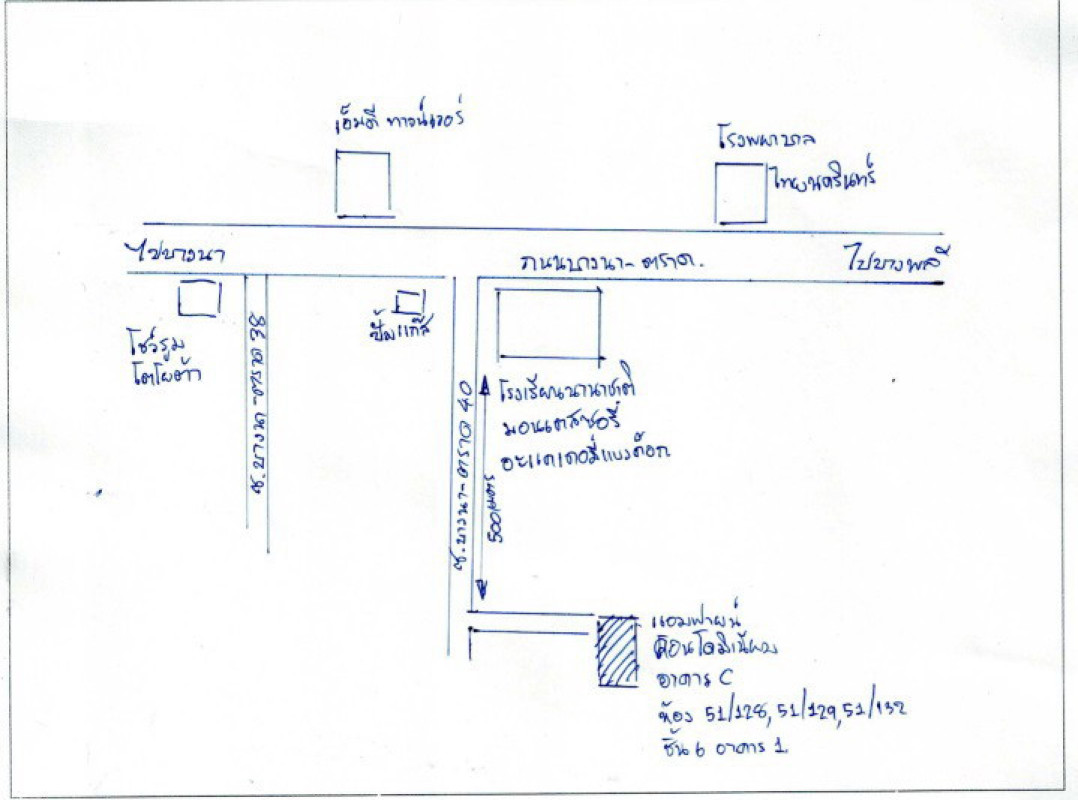 เอ็มดี ทาวน์เวอร์
โรงพยาบาล
ไทยนครินทร์
ไปบางนา
ถนนบางนา-ตราด.
ไปบางพลี
โชว์รูม
โตโยต้า
ซ.บางนา-ตราด 38
ปั้มแก๊ส
ซ.บางนา-ตราด 40
500เมตร
โรงเรียนนานาชาติ
มอนเตสซอรี่
อะแคเดอมี่แบงค็อก
แอมฟายน์
คอนโดมิเนียม
อาคาร C
ห้อง 51/128, 51/129, 51/132
ชั้น 6 อาคาร 1